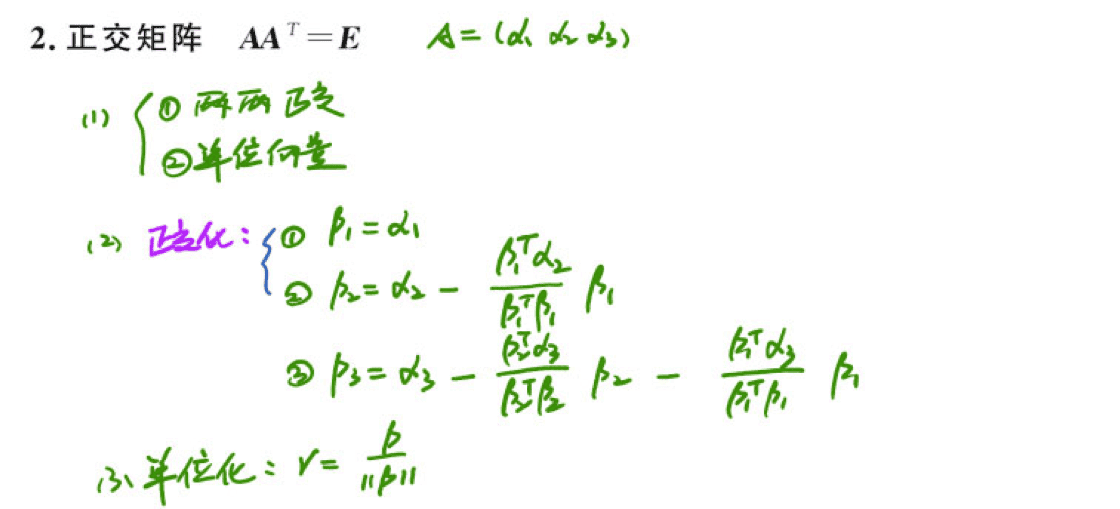 2. 正交矩阵 AAᵀ=E A=(α₁ α₂ α₃)
(1) ① 两两正交
② 单位向量
(2) 正交化: ① β₁=α₁
② β₂=α₂ - β₁ᵀα₂/β₁ᵀβ₁ β₁
③ β₃=α₃ - β₂ᵀα₃/β₂ᵀβ₂ β₂ - β₁ᵀα₃/β₁ᵀβ₁ β₁
(3) 单位化: γ= β/||β||